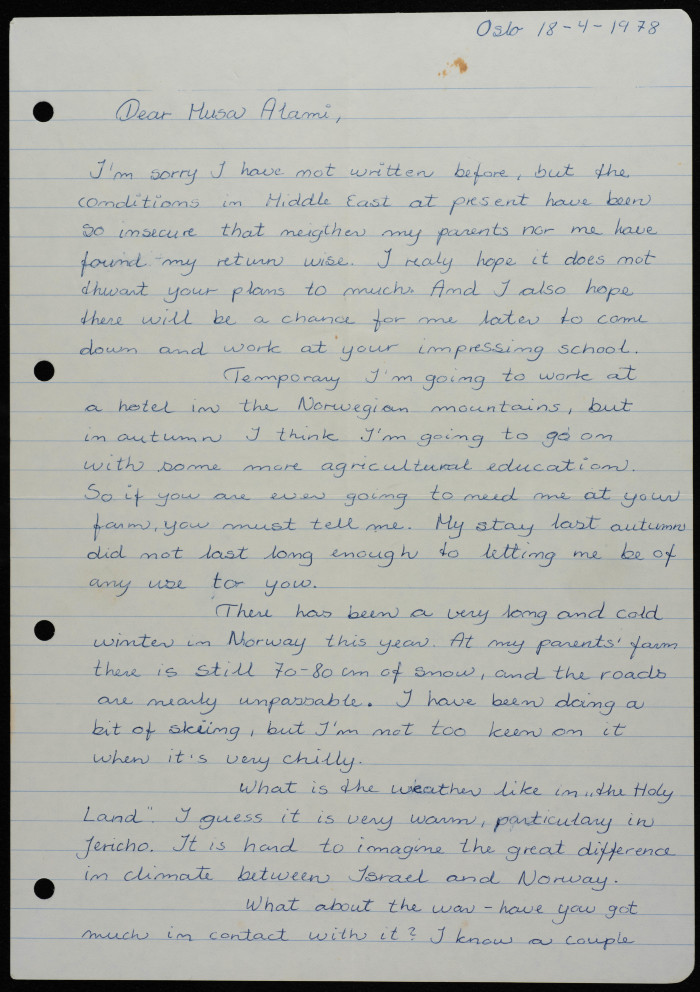 Oslo 18-4-1978
Dear Musa Alami,
I'm sorry I have not written before, but the
conditions in Middle East at present have been
so insecure that neigther my parents nor me have
found my return wise. I realy hope it does not
thwart your plans to much. And I also hope
there will be a chance for me later to come
down and work at your impressing school.
Temporary I'm going to work at
a hotel in the Norwegian mountains, but
in autumn I think I'm going to go on
with some more agricultural education.
So if you are ever going to need me at your
farm, you must tell me. My stay last autumn
did not last long enough to letting me be of
any use to you.
There has been a very long and cold
winter in Norway this year. At my parents' farm
there is still 70-80 cm of snow, and the roads
are nearly unpassable. I have been doing a
bit of skiing, but I'm not too keen on it
when it's very chilly.
What is the weather like in „the Holy
Land". I guess it is very warm, particulary in
Jericho. It is hard to imagine the great difference
in climate between Israel and Norway.
What about the war - have you got
much in contact with it? I know a couple